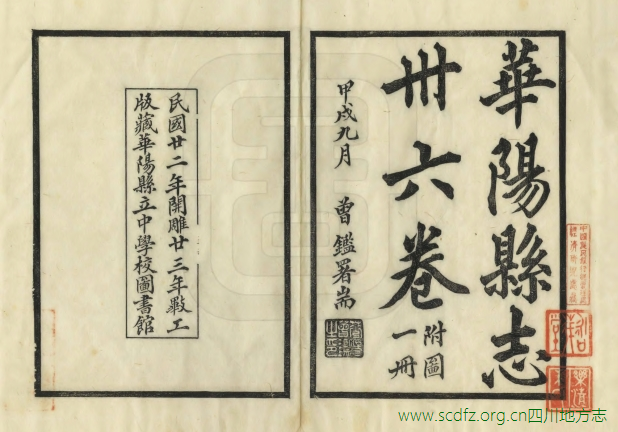 華陽縣志
卅六卷
附圖
一冊
甲戌九月　曾鑑署耑
民國廿二年開雕廿三年斁工
版藏華陽縣立中學校圖書館
www.scdfz.org.cn四川地方志